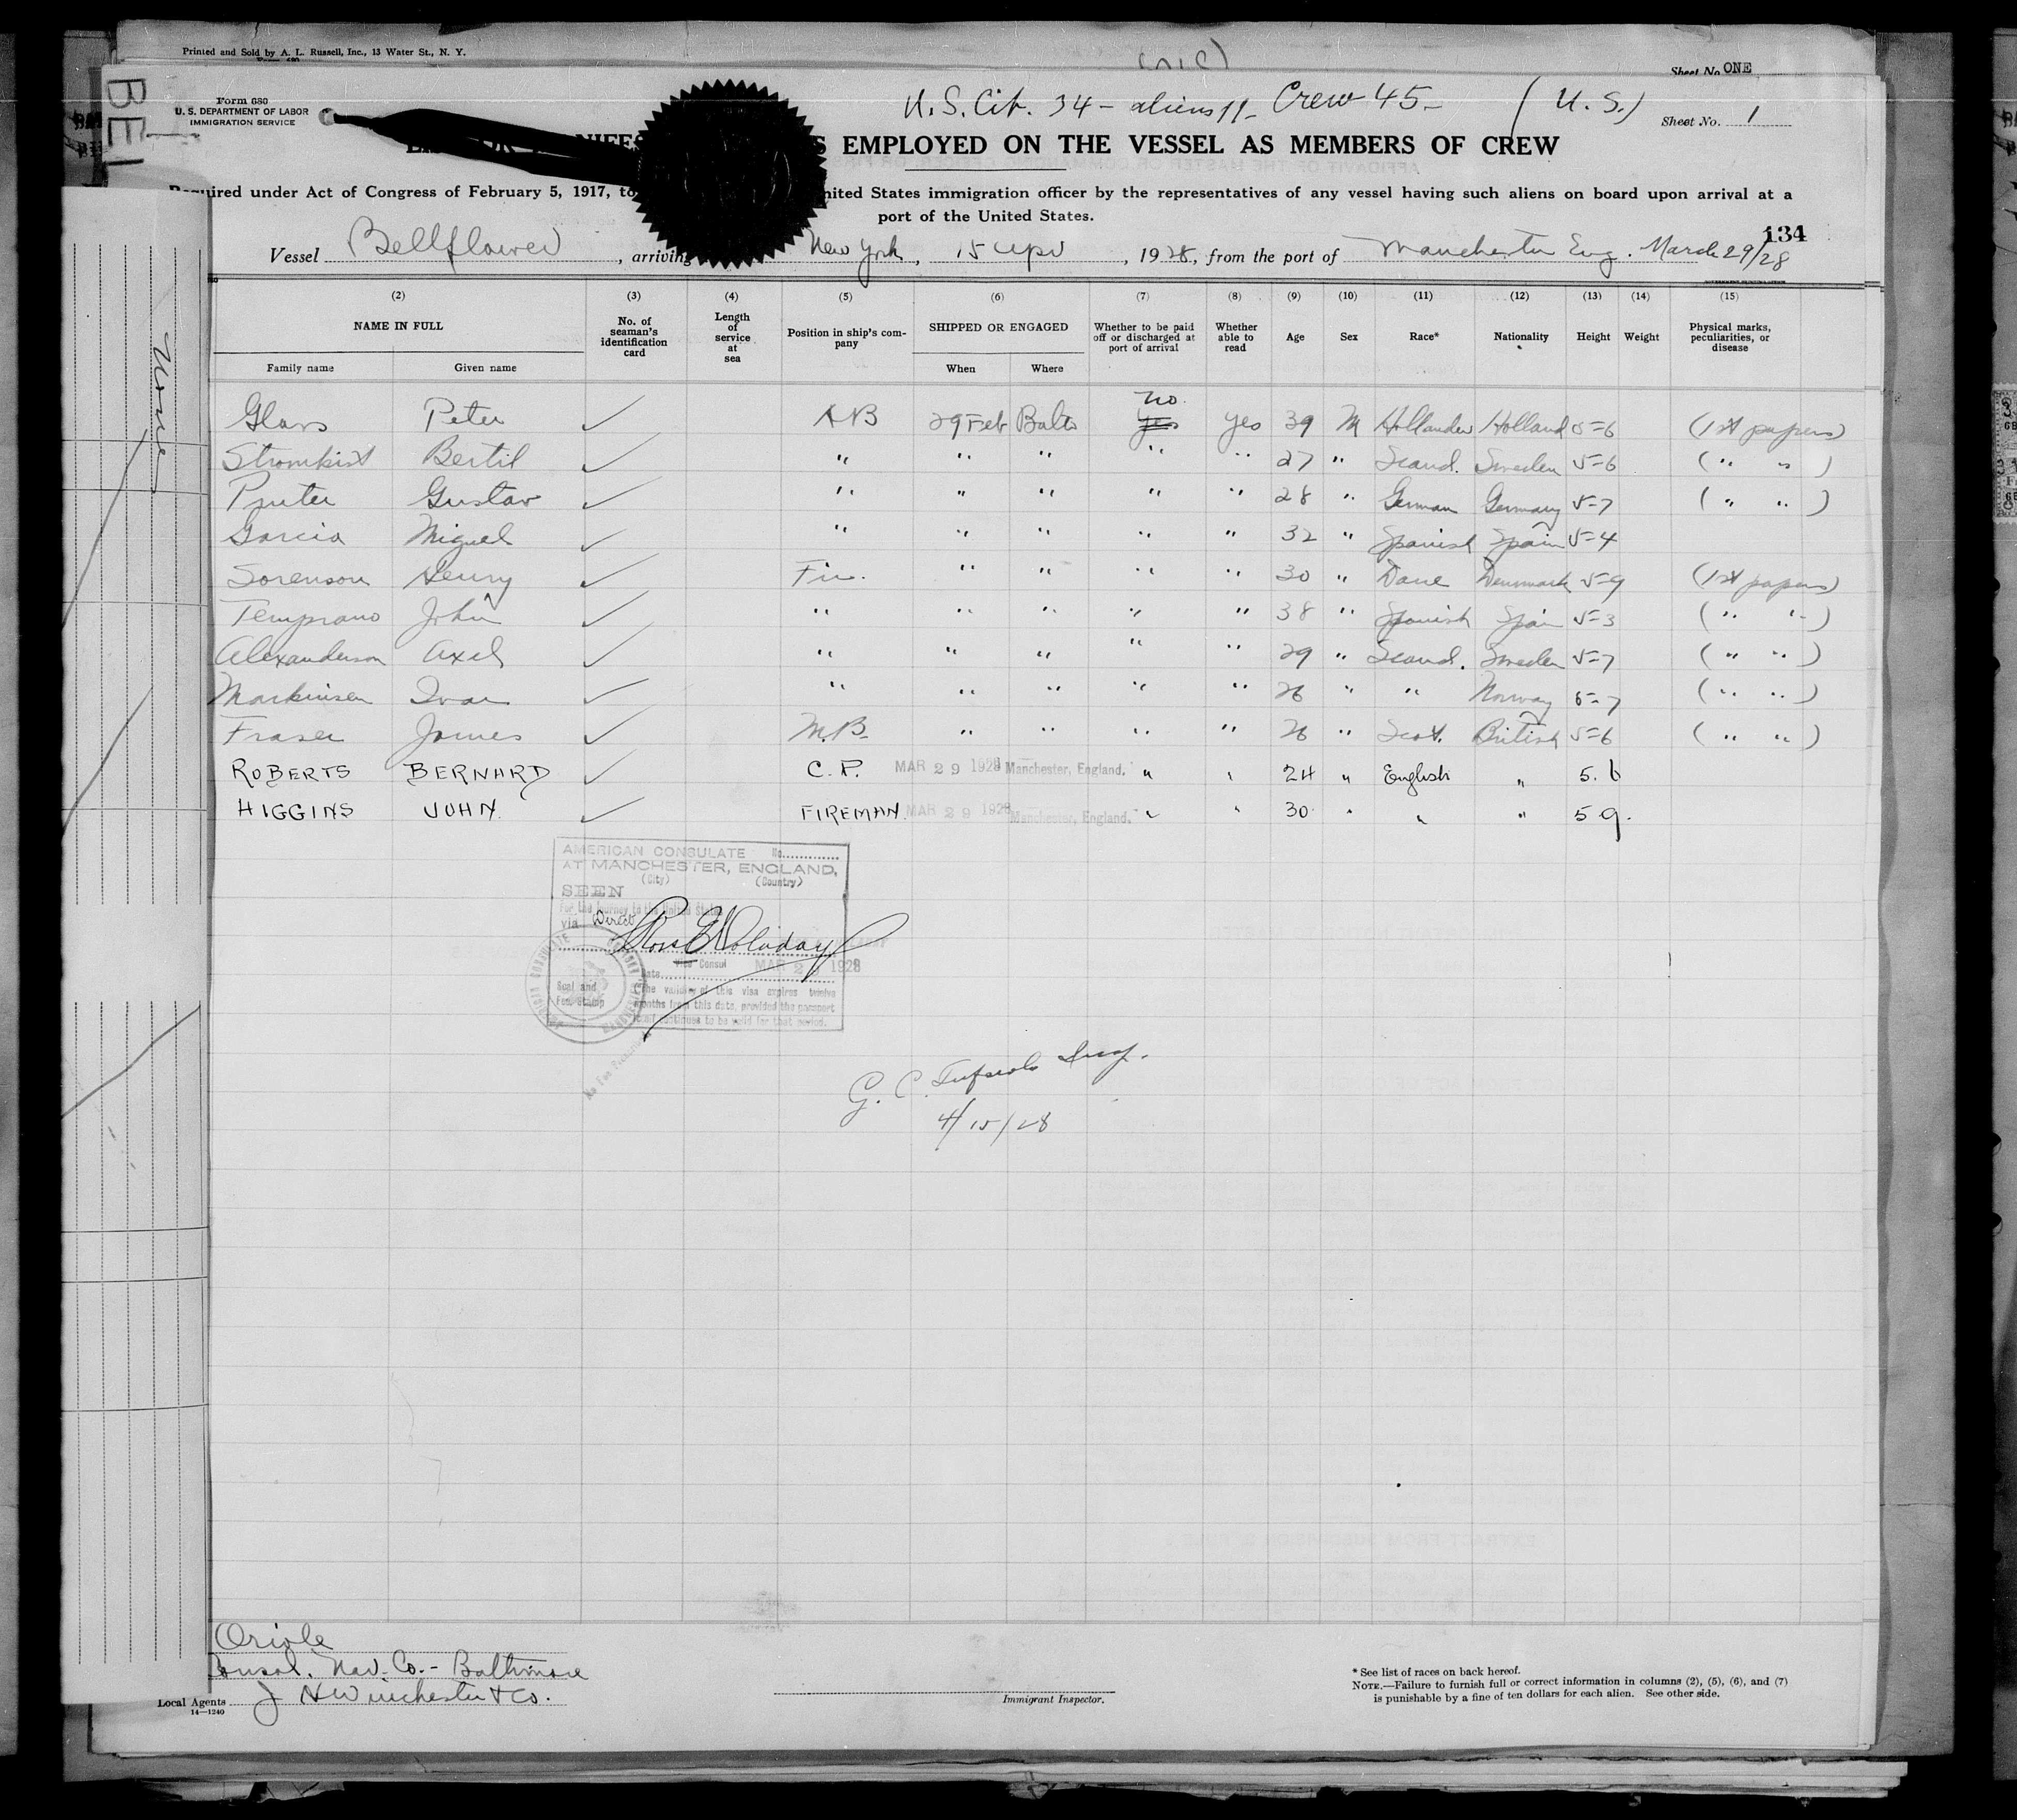 Printed and Sold by A. L. Russell, Inc., 13 Water St., N. Y.
Sheet No. ONE
BEL
Form 680
U. S. DEPARTMENT OF LABOR
IMMIGRATION SERVICE
U.S. Cit. 34 - aliens 11 - Crew 45 - (U.S.)
Sheet No. 1
EMPLOYED ON THE VESSEL AS MEMBERS OF CREW
Required under Act of Congress of February 5, 1917, to United States immigration officer by the representatives of any vessel having such aliens on board upon arrival at a
port of the United States.
134
Vessel Bellflower, arriving New York, 15 Apr, 1928, from the port of Manchester Eng. March 29/28
(2) (3) (4) (5) (6) (7) (8) (9) (10) (11) (12) (13) (14) (15)
NAME IN FULL No. of seaman's identification card Length of service at sea Position in ship's company SHIPPED OR ENGAGED Whether to be paid off or discharged at port of arrival Whether able to read Age Sex Race* Nationality Height Weight Physical marks, peculiarities, or disease
Family name Given name When Where
no
Glass Peter ✓ AB 29 Feb Balto yes yes 39 M Hollander Holland 5-6 (1st papers)
Stromkist Bertil ✓ " " " " " 27 " Scand. Sweden 5-6 (" ")
Pruter Gustav ✓ " " " " " 28 " German Germany 5-7 (" ")
Garcia Miguel ✓ " " " " " 32 " Spanish Spain 5-4
Sorenson Henry ✓ Fir. " " " " 30 " Dane Denmark 5-9 (1st papers)
Temprano John ✓ " " " " " 38 " Spanish Spain 5-3 (" ")
Alexanderson Axel ✓ " " " " " 29 " Scand. Sweden 5-7 (" ")
Markinsen Ivar ✓ " " " " " 26 " " Norway 5-7 (" ")
Fraser James ✓ M.B. " " " " 26 " Scot. British 5-6 (" ")
ROBERTS BERNARD ✓ C.P. MAR 29 1928 Manchester, England. " " 24 " English " 5.6
HIGGINS JOHN. ✓ FIREMAN. MAR 29 1928 Manchester, England. " " 30 " " " 5 9.
AMERICAN CONSULATE No.
AT MANCHESTER, ENGLAND,
(City) (Country)
SEEN
For the journey to the United States
via Direct
Ross E Holaday
Consul
Date MAR 29 1928
Seal and
Fee Stamp
The validity of this visa expires twelve
months from this date, provided the passport
itself continues to be valid for that period.
G. C. Insp.
4/15/28
None
Oriole
Consol. Nav. Co. - Baltimore
Local Agents J H Winchester & Co.
14—1240
Immigrant Inspector.
* See list of races on back hereof.
NOTE.—Failure to furnish full or correct information in columns (2), (5), (6), and (7)
is punishable by a fine of ten dollars for each alien. See other side.